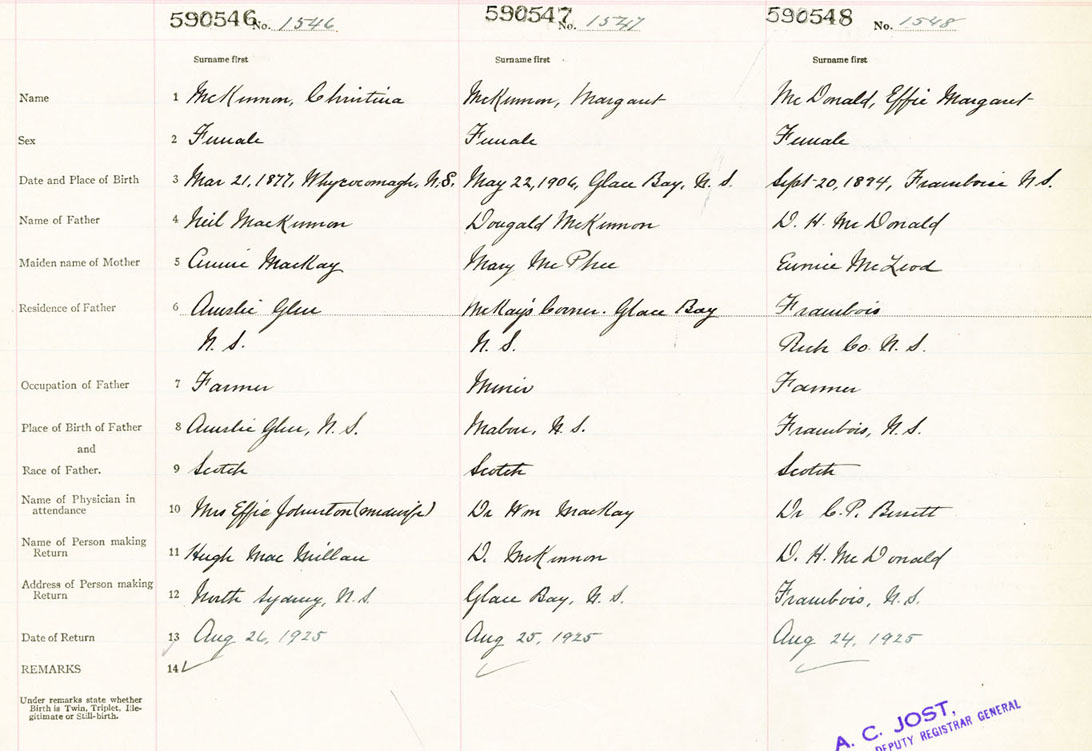 590546 No. 1546 590547 No. 1547 590548 No. 1548
Surname first Surname first Surname first
Name 1 McKinnon, Christina McKinnon, Margaret McDonald, Effie Margaret
Sex 2 Female Female Female
Date and Place of Birth 3 Mar 21, 1877, Whycocomagh, N.S. May 22, 1906, Glace Bay, N.S. Sept 20, 1894, Framboise N.S.
Name of Father 4 Neil MacKinnon Dougald McKinnon D. H. McDonald
Maiden name of Mother 5 Annie MacKay Mary McPhee Eunice McLeod
Residence of Father 6 Ainslie Glen McKay's Corner. Glace Bay Frambois
N. S. N. S. Rich Co. N. S.
Occupation of Father 7 Farmer Miner Farmer
Place of Birth of Father 8 Ainslie Glen, N. S. Mabou, N. S. Frambois, N. S.
and
Race of Father. 9 Scotch Scotch Scotch
Name of Physician in
attendance 10 Mrs Effie Johnston (midwife) Dr Wm MacKay Dr C. P.
Name of Person making
Return 11 Hugh MacMillan D. McKinnon D. H. McDonald
Address of Person making
Return 12 North Sydney, N.S. Glace Bay, N.S. Frambois, N.S.
Date of Return 13 Aug 26, 1925 Aug 25, 1925 Aug 24, 1925
REMARKS 14
Under remarks state whether
Birth is Twin, Triplet, Ille-
gitimate or Still-birth.
A. C. JOST,
DEPUTY REGISTRAR GENERAL